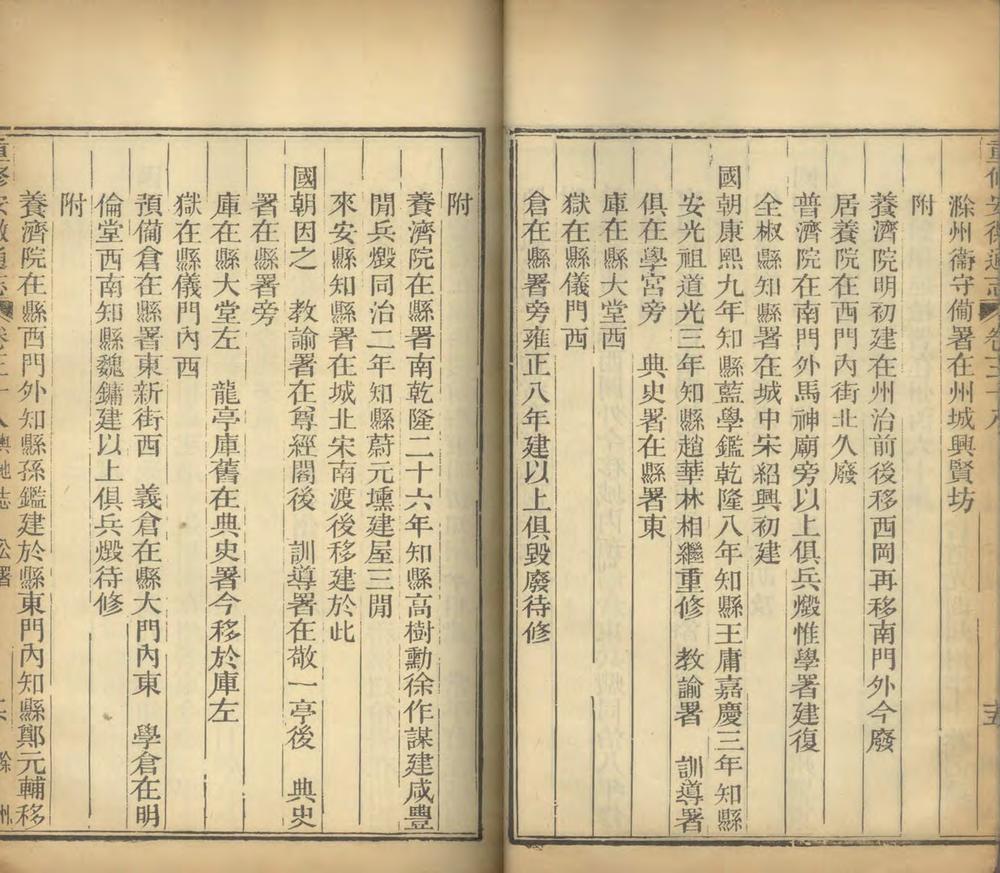 重修安徽通志 卷三十八
滁州衞守備署在州城興賢坊
附
養濟院明初建在州治前後移西岡再移南門外今廢
居養院在西門內街北久廢
普濟院在南門外馬神廟旁以上俱兵燬惟學署建復
全椒縣知縣署在城中宋紹興初建
國朝康熙九年知縣藍學鑑乾隆八年知縣王庸嘉慶三年知縣
安光祖道光三年知縣趙華林相繼重修 教諭署 訓導署
俱在學宮旁 典史署在縣署東
庫在縣大堂西
獄在縣儀門西
倉在縣署旁雍正八年建以上俱毀廢待修
附
養濟院在縣署南乾隆二十六年知縣高樹勳徐作謀建咸豐
閒兵燬同治二年知縣蔚元壎建屋三閒
來安縣知縣署在城北宋南渡後移建於此
國朝因之 教諭署在尊經閣後 訓導署在敬一亭後 典史
署在縣署旁
庫在縣大堂左 龍亭庫舊在典史署今移於庫左
獄在縣儀門內西
預備倉在縣署東新街西 義倉在縣大門內東 學倉在明
倫堂西南知縣魏鏞建以上俱兵燬待修
附
養濟院在縣西門外知縣孫鑑建於縣東門內知縣鄭元輔移
重修安徽通志 卷三十八 輿地志 公署 滁州